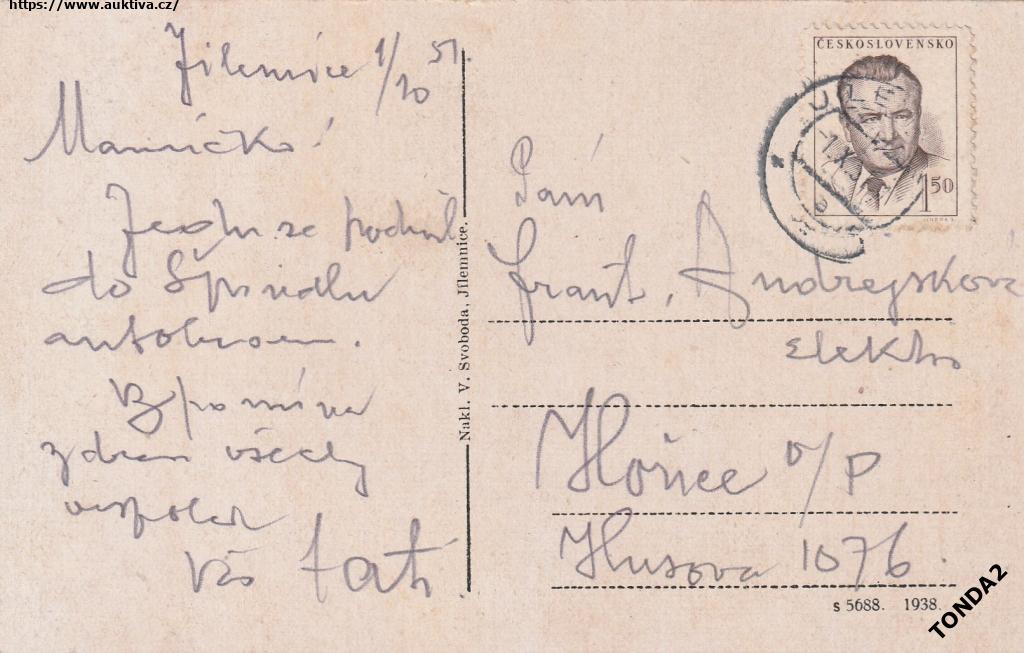 https://www.auktiva.cz/
Jilemnice 1/10 51.
Mamičko!
Jedu ze
do Špindlu
autobusem.
Vzpomíná
zdraví všecky
Váš tati.
Nakl. V. Svoboda, Jilemnice.
ČESKOSLOVENSKO
1 50
Paní
Frant. Andrejsková
Elektro
Hořice v/P
Husova 1076.
s 5688. 1938.
TONDA2